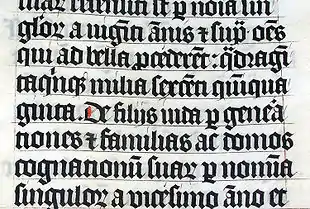 uar recensiti st p noīa sin
gloꝝ a vigīti ānis ⁊ sup̄ · oēs
qui ad bella p̄cederēt : q̄dragī
taq̄nq milia sexcēti quīqua
ginta. De filijs iuda p genēa
tiones ⁊ familias ac domos
cognationū suaꝝ p nomīa
singuloꝝ a vicesimo āno et